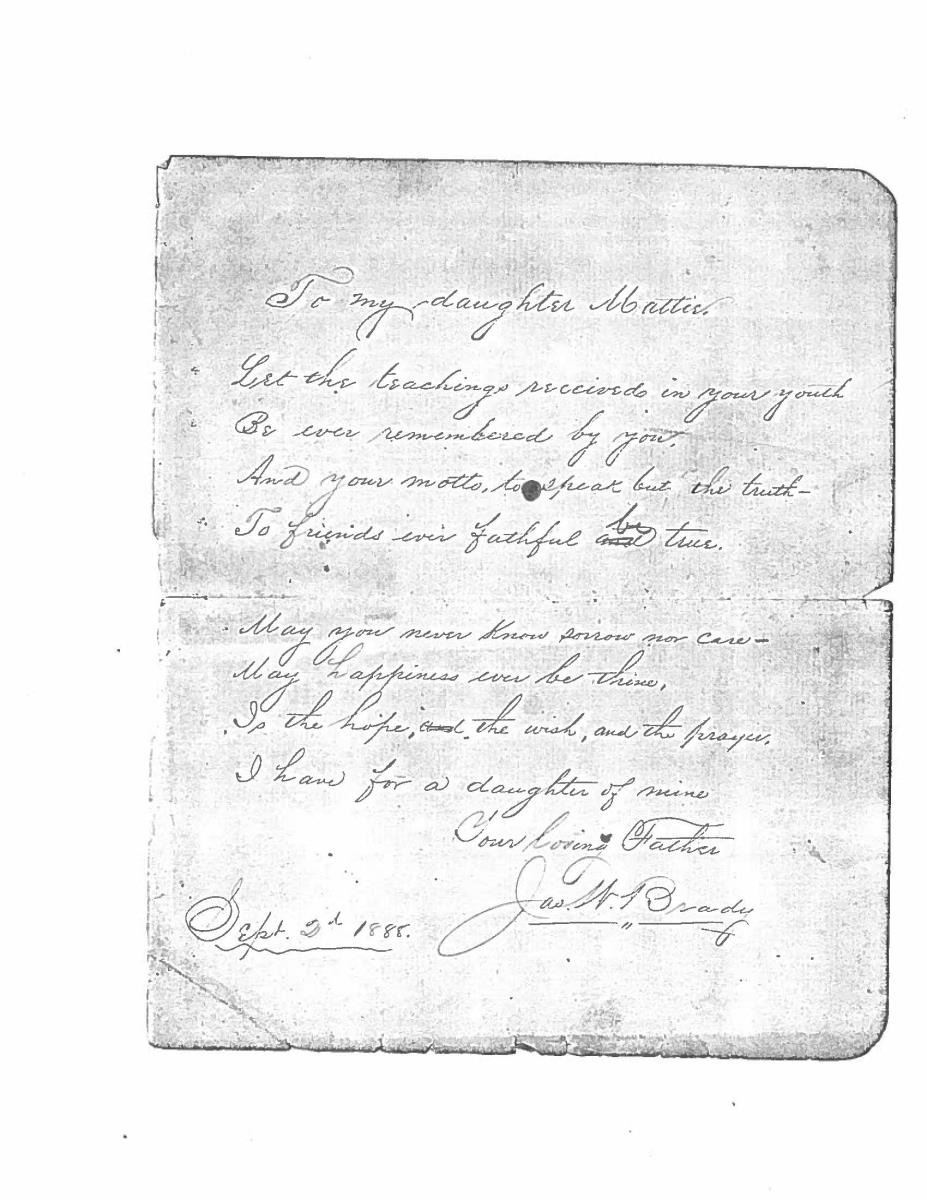 To my daughter Mattie.
Let the teachings received in your youth
Be ever remembered by you.
And your motto, to speak but the truth—
To friends ever fathful and be true.
May you never know sorrow nor care—
May happiness ever be thine,
Is the hope, and, the wish, and the prayer,
I have for a daughter of mine
Your loving Father
Jas. W. Brady
Sept. 2d 1888.